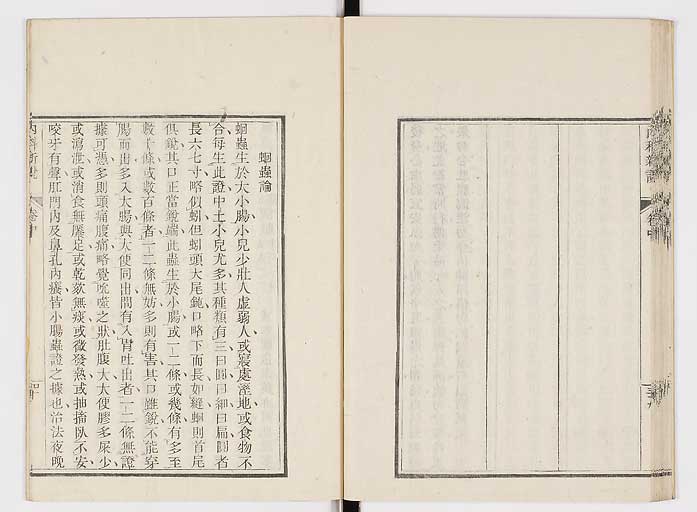 蛔蟲論
蛔蟲生於大小腸小兒少壯人虛弱人或寢處溼地或食物不
合每生此證中土小兒尤多其種類有三曰圓曰細曰扁圓者
長六七寸略似蚓但蚓頭大尾鈍口略下而長如縫蛔則首尾
俱銳其口正當銳端此蟲生於小腸或一二條或幾條有多至
數十條或數百條者一二條無妨多則有害其口雖銳不能穿
腸而出多入大腸與大便同出間有入胃吐出者一二條無證
據可憑多則頭痛腹痛略覺吮噬之狀肚腹大大便膠多屎少
或瀉泄或消食無饜足或乾欬無痰或微發熱或抽搐臥不安
咬牙有聲肛門內及鼻孔內癢皆小腸蟲證之據也治法夜晚
內科新說
卷中